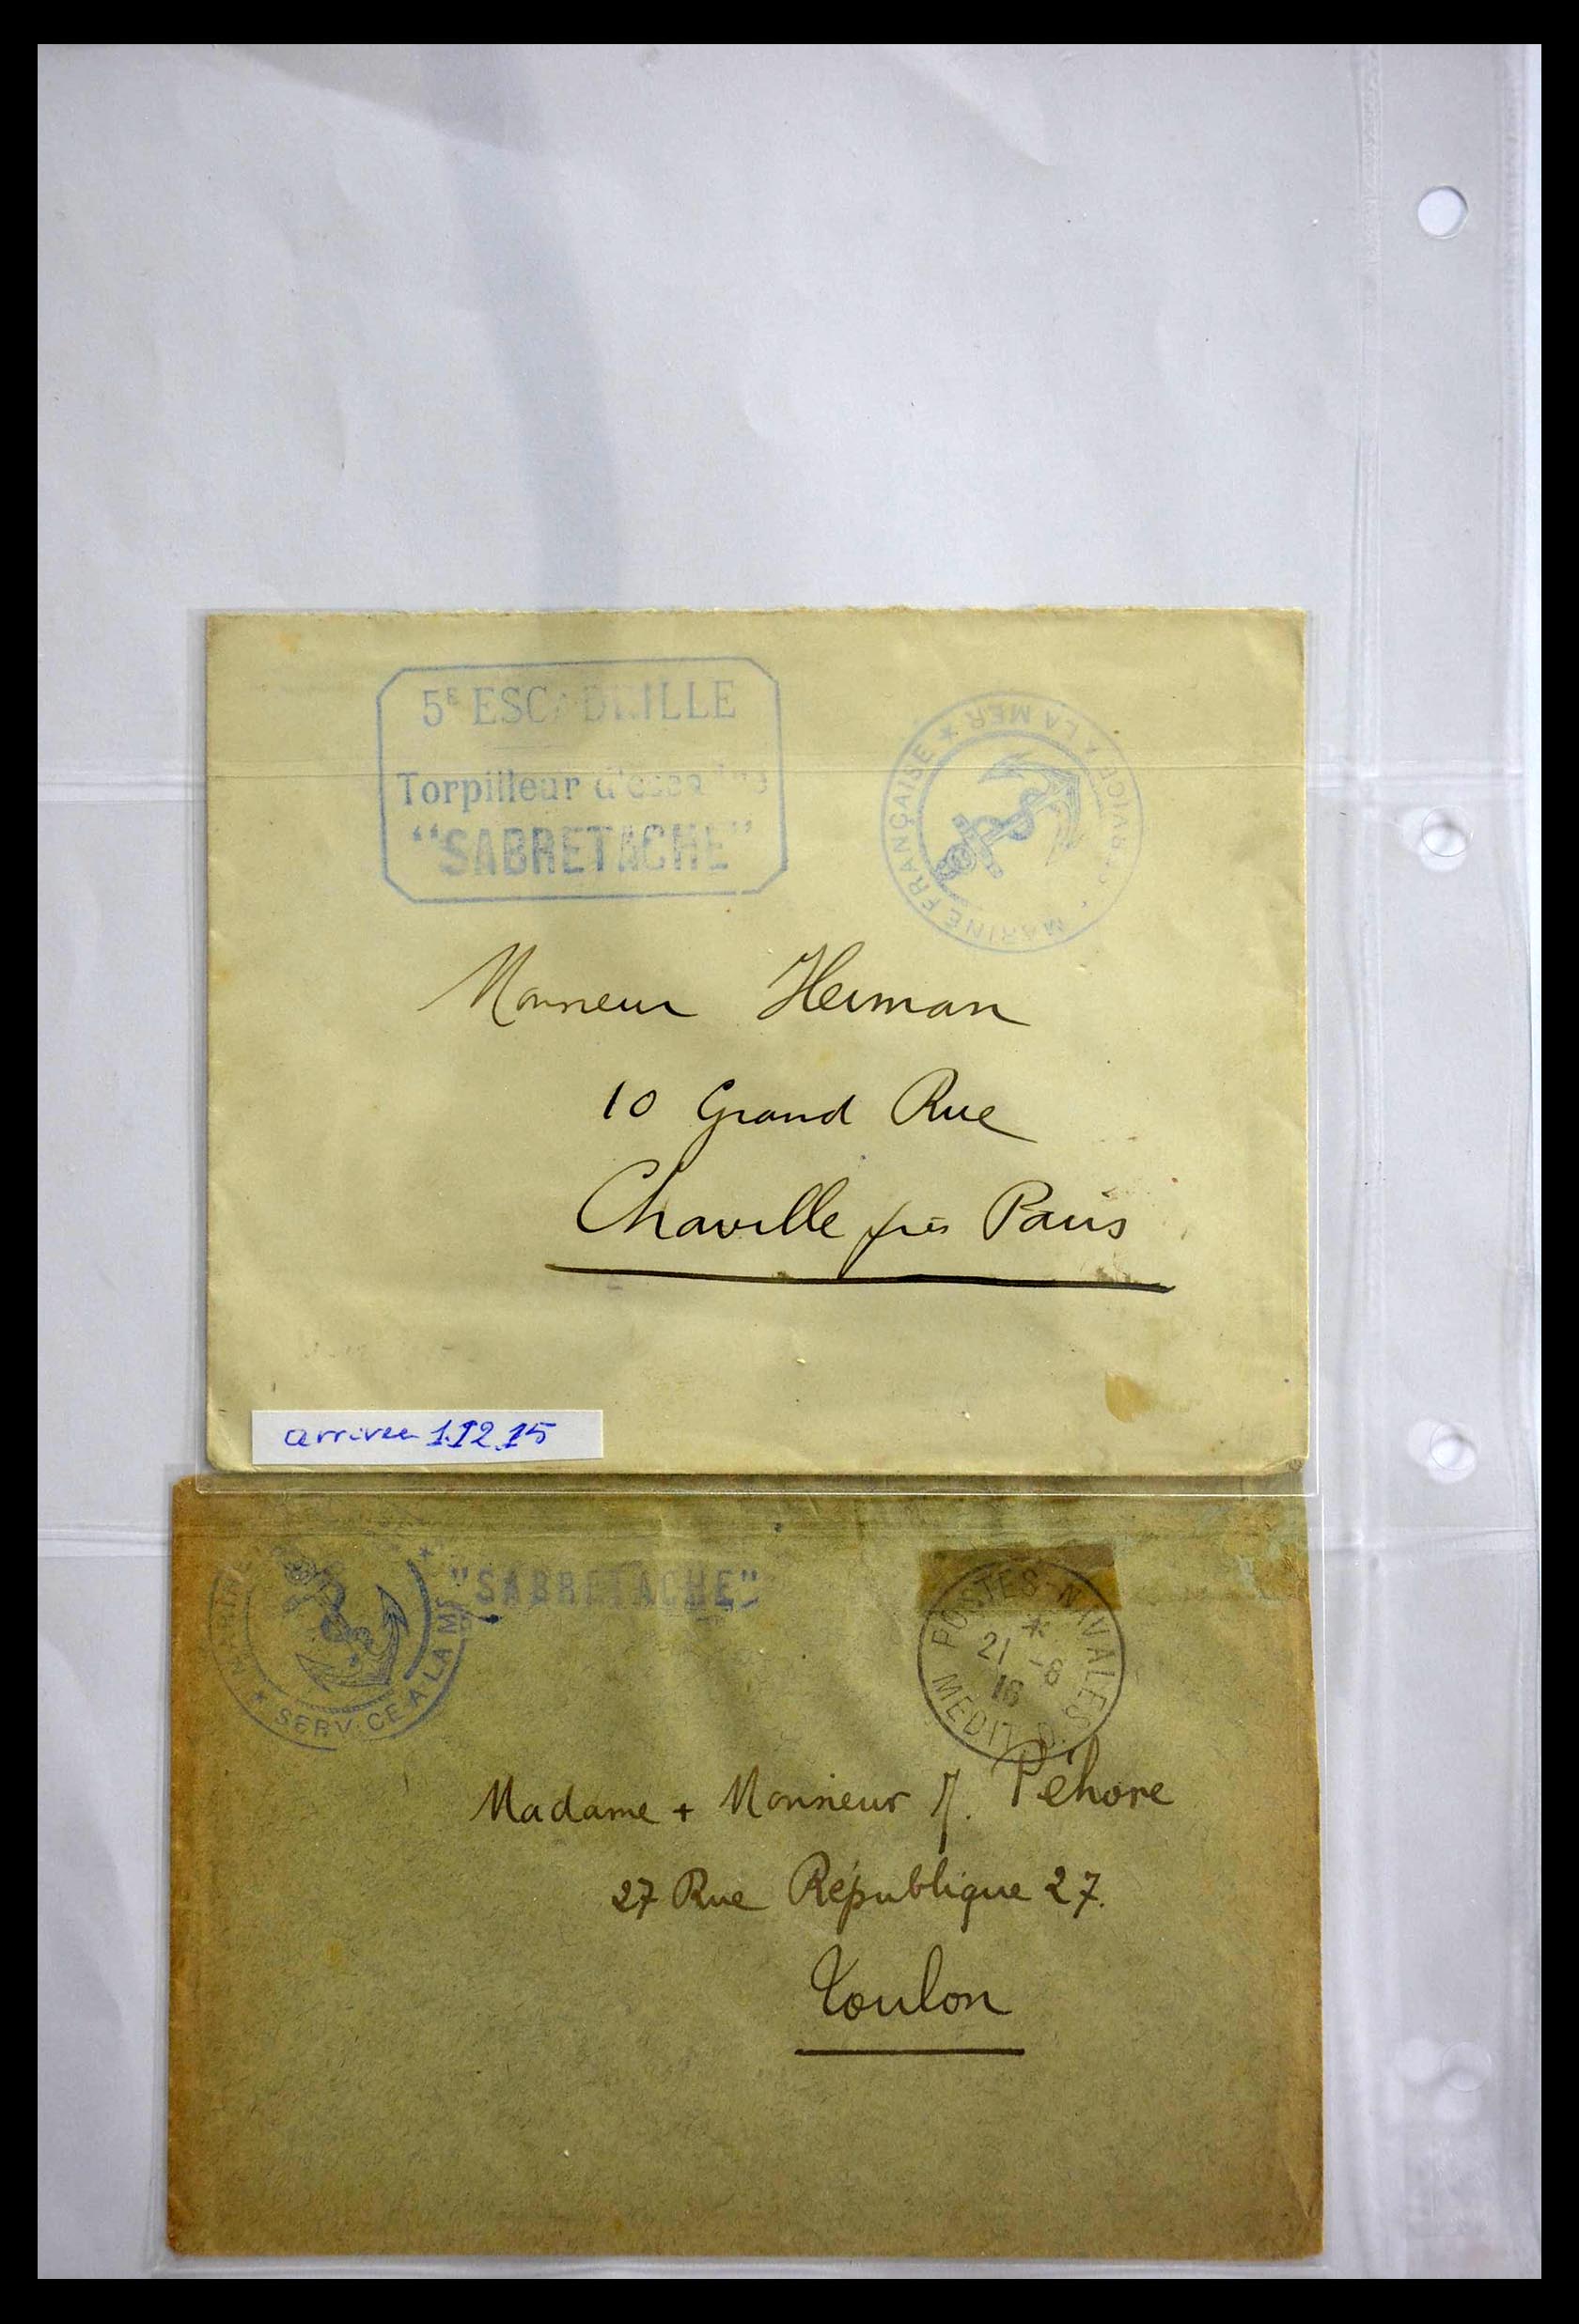 5E ESCADRILLE
Torpilleur d'escadre
"SABRETACHE"
MARINE FRANÇAISE ★ SERVICE A LA MER
Monsieur Herman
10 Grand Rue
Chaville près Paris
arrivee 1.12.15
MARINE
★ SERVICE A LA ME
"SABRETACHE"
POSTES NAVALES
*
21 -6
16
MEDIT
Madame + Monsieur J. Péhore
27 Rue République 27.
Toulon